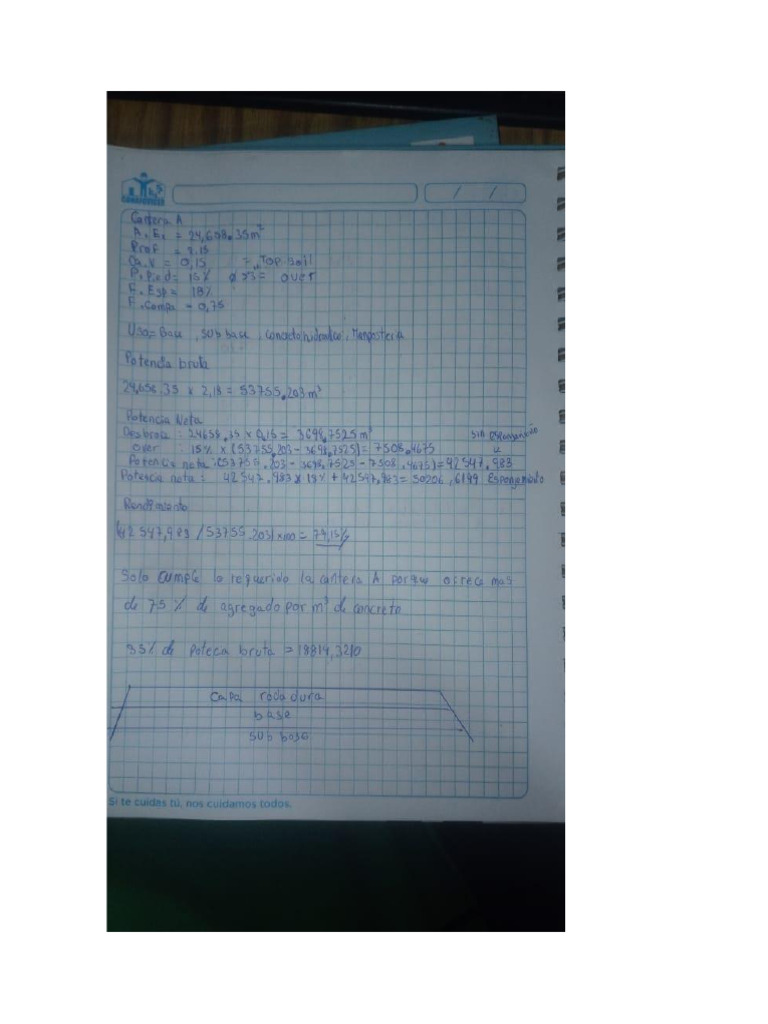 Cantera A
A. Ex = 24,658.35 m²
Prof = 2.18
Ca. V = 0,15 = Top soil
P. Pied = 15% ø >3 = over
F. Esp = 18%
F. Compa = 0,75
Uso = Base, sub base, Concreto hidraulico, Mamposteria
Potencia bruta
24,658.35 x 2,18 = 53755.203 m³
Potencia Neta
Desbroce : 24658.35 x 0,15 = 3698,7525 m³ sin esponjamiento
over : 15% x (53755.203 - 3698,7525) = 7508.4675
Potencia neta : (53755.203 - 3698,7525 - 7508.4675) = 42547.983
Potencia neta : 42547.983 x 18% + 42547,983 = 50206,6199 Esponjamiento
Rendimiento
42547,983 / 53755.203 x 100 = 79,15%
Solo cumple lo requerido la cantera A porque ofrece mas
de 75 % de agregado por m³ de concreto
35% de Potecia bruta = 18814,3210
Capa rodadura
base
sub base
Si te cuidas tú, nos cuidamos todos.